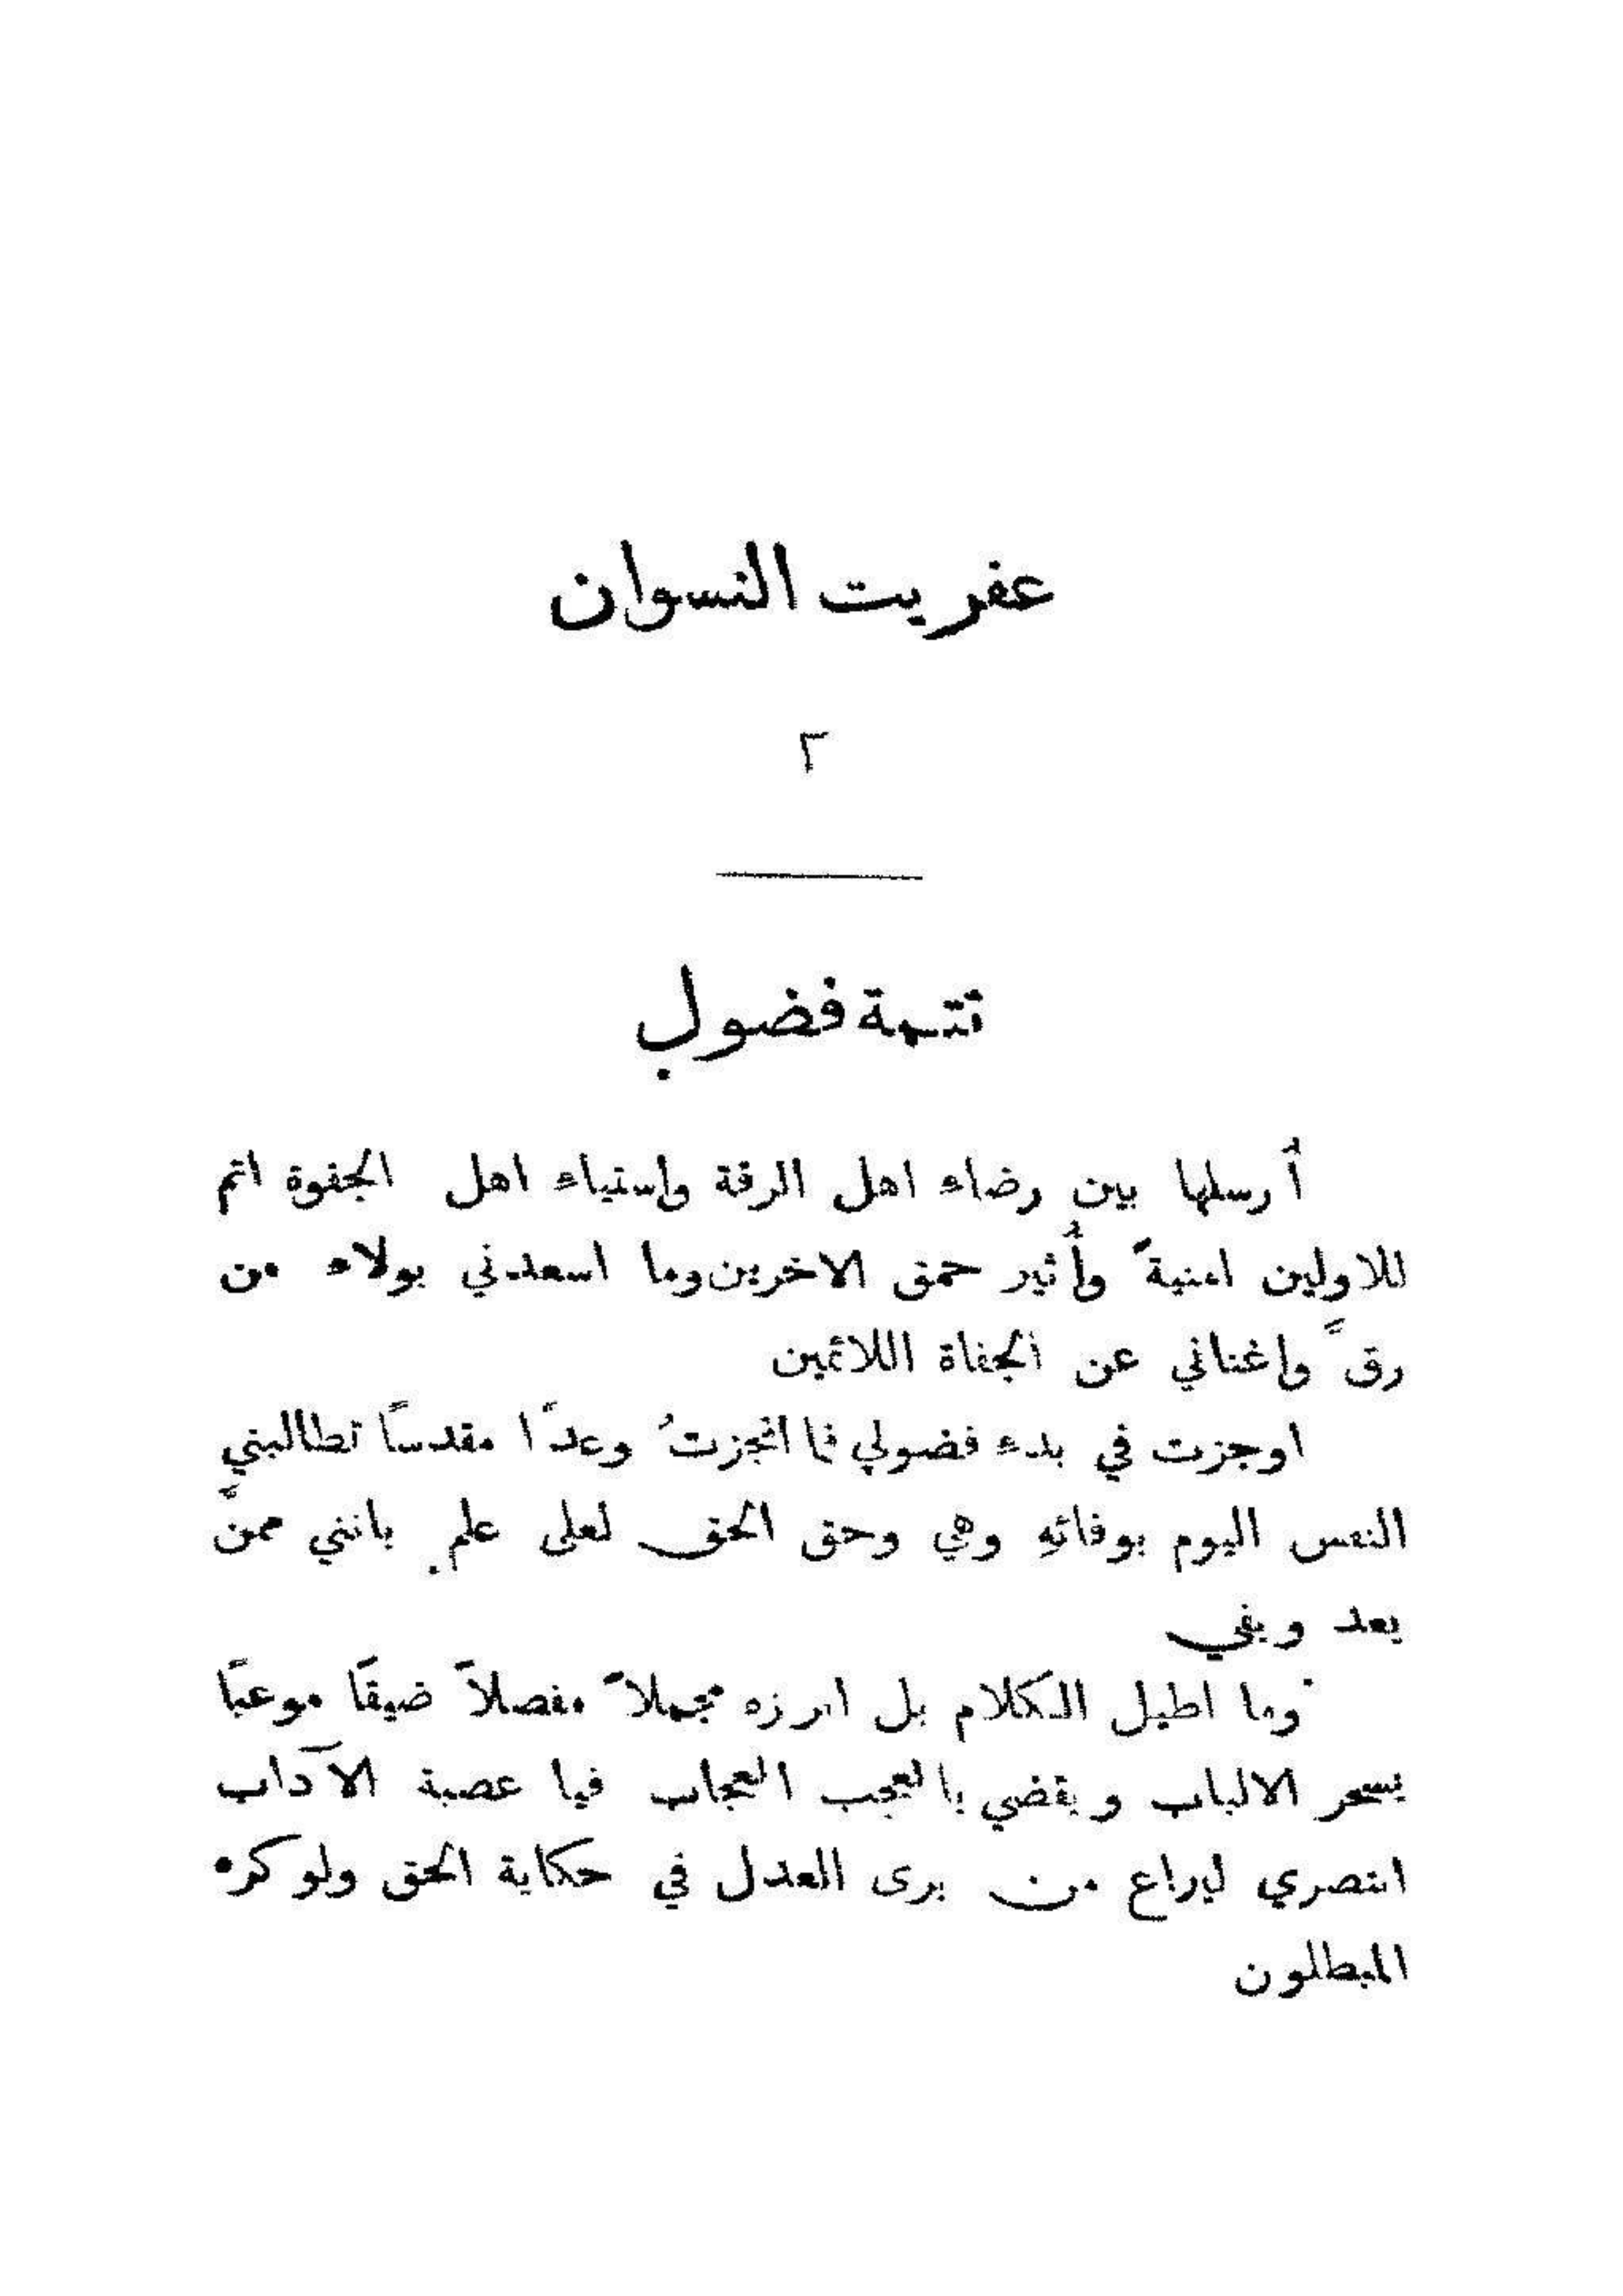 عفريت النسوان
٢
تتمة فضول
أُرسلها بين رضاء اهل الرقة واستياء اهل الجفوة اتم
للاولين امنيةً وأُثير حمق الاخرين وما اسعدني بولاء من
رقَّ واغناني عن الجفاة اللائمين
اوجزت في بدء فضولي فما انجزتُ وعدًا مقدسًا تطالبني
النفس اليوم بوفائهِ وهي وحق الحق لعلى علمٍ بانني ممن
يعد ويفي
وما اطيل الكلام بل ابرزه مجملاً مفصلاً ضيقًا موعبًا
يسحر الالباب ويقضي بالعجب العجاب فيا عصبة الآداب
انتصري ليراع من يرى العدل في حكاية الحق ولو كره
المبطلون